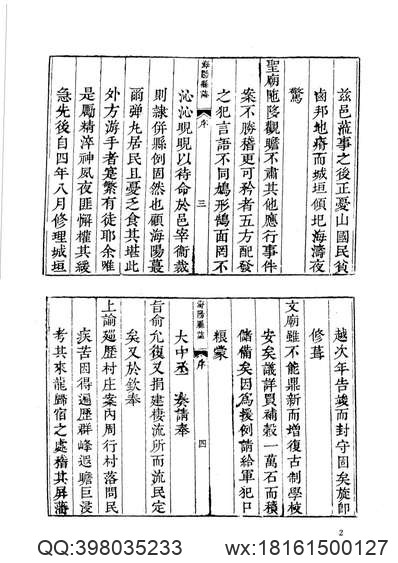 茲邑蒞事之後正憂山國民貧
鹵邦地瘠而城垣傾圮海濤夜
驚
聖廟陁陊觀瞻不肅其他應行事件
案不勝稽更可矜者五方配發
之犯言語不同鳩形鵠面罔不
海陽縣誌 序 三
沁沁睍睍以待命於邑宰衞裁
則隸併縣倒固然也顧海陽蕞
爾彈丸居民且憂之食其堪此
外方游手者寔繁有徒耶余唯
是勵精淬神夙夜匪懈權其緩
急先後自四年八月修理城垣
越次年告竣而封守固矣旋即
修葺
文廟雖不能鼎新而增復古制學校
安矣議詳買補穀一萬石而積
儲備矣因為援例請給軍犯口
粮蒙
海陽縣誌 序 四
大中丞 奏請奉
旨俞允復又捐建棲流所而流民定
矣又於欽奉
上諭廵歷村庄案內周行村落問民
疾苦因得遍歷群峰遐瞻巨浸
考其來龍歸宿之處稽其屏藩
2
QQ:398035233 wx:18161500127